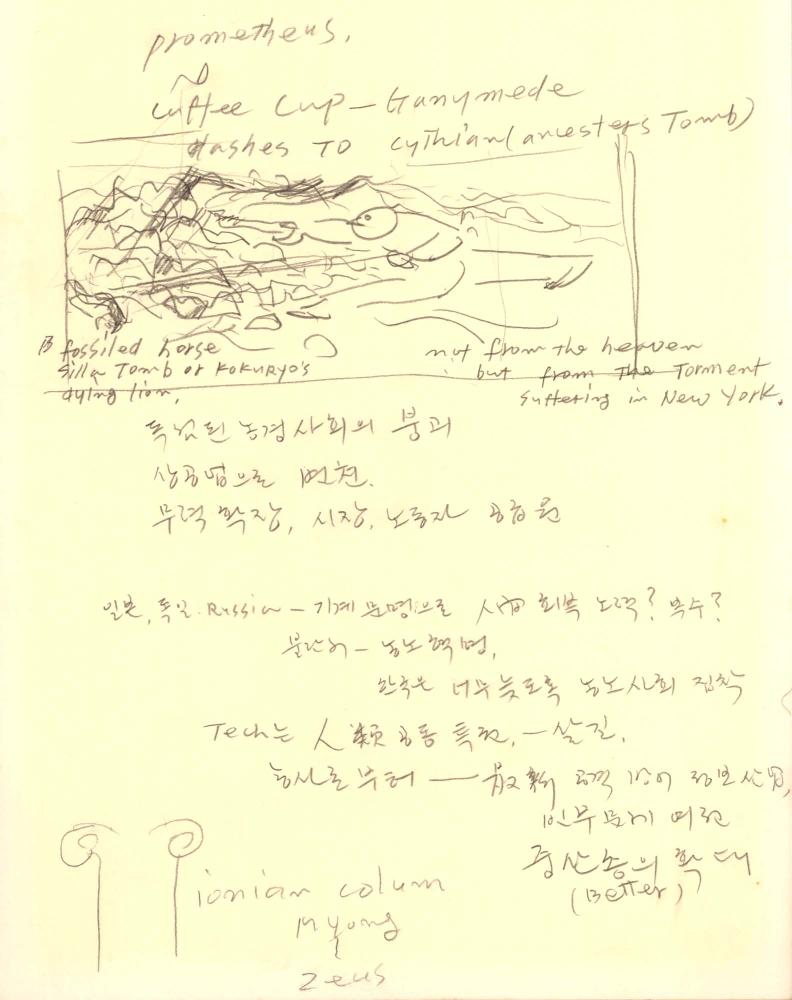 prometheus.
cuffee cup - Ganymede
dashes TO cythian (ancesters Tomb)
fossiled horse
Silla Tomb or KOKURYO's
dying lion,
not from the heaven
but from the Torment
suffering in New York.
독립된 농경사회의 붕괴
상공업으로 변천.
무력 확장, 시장, 노동자 공급원
일본, 독일. Russia - 기계문명으로 人間 회복 노력? 복수?
- 농노혁명,
한국은 너무 늦도록 농노사회 집착
Tech는 人類 공통 특권, - 살길,
농사로부터 — 最新
빈부 문제 여전
중산층의 확대
(Better)
ionian colum
Myong
Zeus